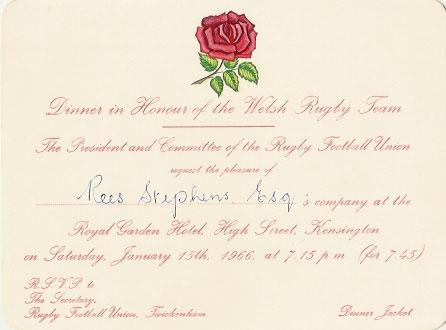 Dinner in Honour of the Welsh Rugby Team
The President and Committee of the Rugby Football Union
request the pleasure of
Rees Stephens. Esq 's company at the
Royal Garden Hotel, High Street, Kensington
on Saturday, January 15th, 1966, at 7.15 p.m (for 7.45)
R.S.V.P. to
The Secretary,
Rugby Football Union, Twickenham.
Dinner Jacket.